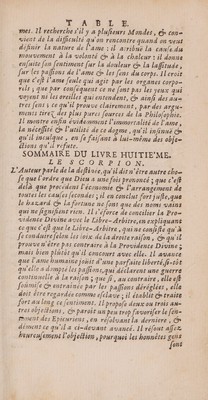 TABLE.
mes. Il recherche s'il y a plusieurs Mondes, & con-
vient de la difficulté qu'on rencontre quand on veut
définir la nature de l'ame ; il attribuë la cause du
mouvement à la volonté & à la chaleur : il donne
ensuite son sentiment sur la douleur & la lassitude,
sur les passions de l'ame & les sens du corps. Il croit
que c'est l'ame seule qui agit par les organes corpo-
rels ; que par conséquent ce ne sont pas les yeux qui
voyent ni les oreilles qui entendent, & ainsi des au-
tres sens : ce qu'il prouve clairement, par des argu-
mens tirez des plus pures sources de la Philosophie.
Il montre enfin évidemment l'immortalité de l'ame,
la nécessité & l'utilité de ce dogme, qu'il insinuë &
qu'il inculque, en se faisant à lui-même des obje-
ctions qu'il refute.
SOMMAIRE DU LIVRE HUITIE'ME.
LE SCORPION.
L'Auteur parle de la destinée, qu'il dit n'être autre cho-
se que l'ordre que Dieu a une fois prononcé ; que c'est
delà que procedent l'économie & l'arrangement de
toutes les causes secondes ; il en conclut fort juste, que
le hazard & la fortune ne sont que des noms vains
qui ne signifient rien. Il s'éforce de concilier la Pro-
vidence Divine avec le Libre-Arbitre, en expliquant
ce que c'est que le Libre-Arbitre, qui ne consiste qu'à
se conduire selon les loix de la droite raison, & qu'il
prouve n'être pas contraire à la Providence Divine ;
mais bien plutôt qu'il concourt avec elle. Il avance
que l'ame humaine jouit d'une parfaite liberté, si-tôt
qu'elle a dompté les passions, qui déclarent une guerre
continuelle à la raison ; que si, au contraire, elle est
soumise & entraînée par les passions déréglées, elle
doit être regardée comme esclave ; il établit & traite
fort au long ce sentiment. Il propose deux ou trois au-
tres objections, & paroît un peu trop favoriser le sen-
timent des Epicuriens, en résolvant la derniere, &
dément ce qu'il a ci-devant avancé. Il résout assez
heureusement l'objection, pourquoi les honnêtes gens
sont